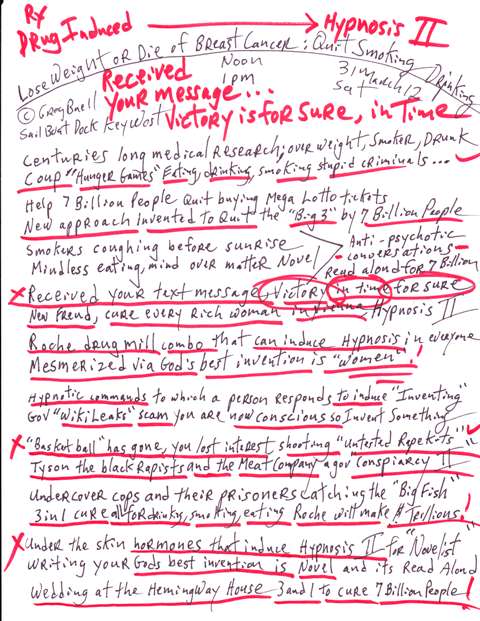 RX
Drug Induced → Hypnosis II
Lose Weight or Die of Breast Cancer: Quit Smoking Drinking
Received
Noon
1pm
31 March/12
Sat
your message...
© Greg Buell
Sail Boat Dock Key West
Victory is for sure, in Time
Centuries long medical research, over weight, Smoker, Drunk
Coup "Hunger Games" Eating, drinking, smoking stupid criminals...
Help 7 Billion People Quit buying Mega Lotto tickets
New approach invented to Quit the "Big 3" by 7 Billion People
Smokers coughing before sunrise
Mindless eating, mind over matter Novel
Anti-psychotic
conversations
Read aloud for 7 Billion
Received your text message, Victory in time for sure
New Freud, cure every Rich woman in Vienna Hypnosis II
Roche drug mill combo that can induce Hypnosis in everyone
Mesmerized via God's best invention is "women"!
Hypnotic commands to which a person responds to induce "Inventing"
Gov "WikiLeaks" scam you are now conscious so Invent Something
"Basket ball" has gone, you lost interest shooting "Untested Rape Kots"
Tyson the black Rapists and the Meat Company a gov "Conspiarcy II
Undercover cops and their prisoners catching the "Big Fish"
3 in 1 cure all for drinking, smoking, eating Roche will make $ Trillions!
Under the skin hormones that induce Hypnosis II for "Novelist"
Writing your Gods best invention is Novel and its Read Aloud
Wedding at the HemingWay House 3 and 1 to cure 7 Billion People!